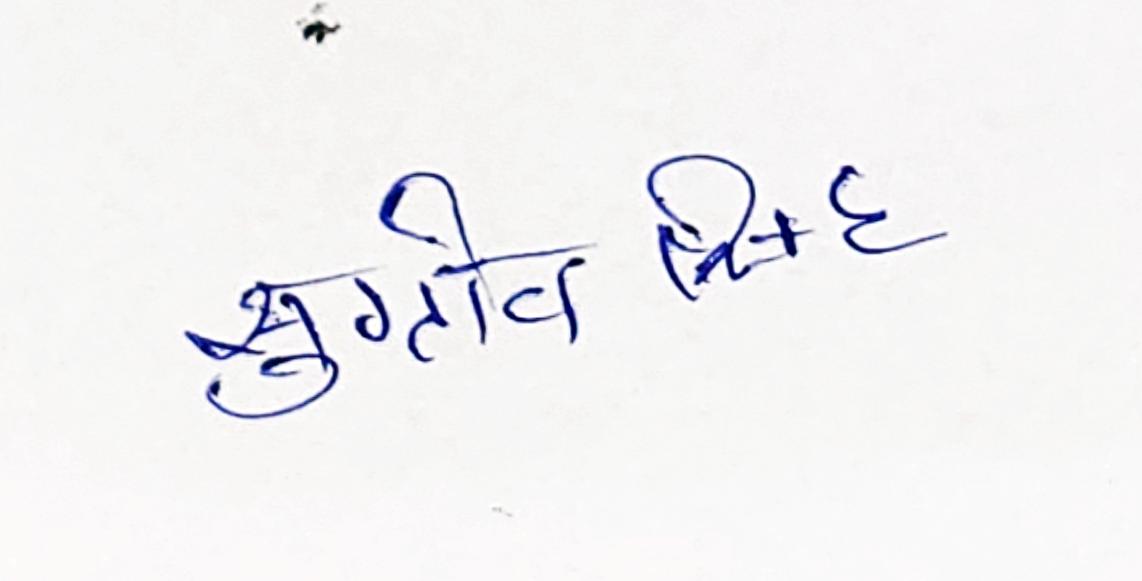 सुग्रीव सिंह